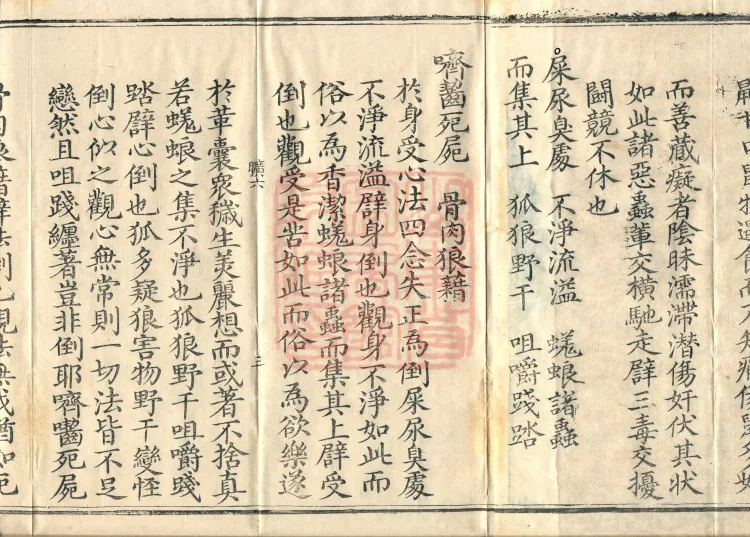 而善藏癡者陰昧濡滯潜傷奸伏其狀
如此諸惡蟲輩交橫馳走譬三毒交擾
鬪競不休也
屎尿臭處 不淨流溢 蜣蜋諸蟲
而集其上 狐狼野干 咀嚼踐踏
嚌齧死屍 骨肉狼藉
於身受心法四念失正為倒屎尿臭處
不淨流溢譬身倒也觀身不淨如此而
俗以為香潔蜣蜋諸蟲而集其上譬受
倒也觀受是苦如此而俗以為欲樂遂
曠六 三
於革囊衆穢生美麗想而或著不捨真
若蜣蜋之集不淨也狐狼野干咀嚼踐
踏譬心倒也狐多疑狼害物野干變怪
倒心似之觀心無常則一切法皆不足
戀然且咀踐纏著豈非倒耶嚌齧死屍